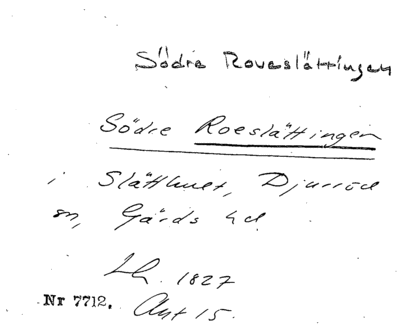 Södre Roveslättingen
Södre Roeslättingen
i Slätthult, Djurröd
sn, Gärds hd.
Lh. 1827
Nr 7712. Akt 15.